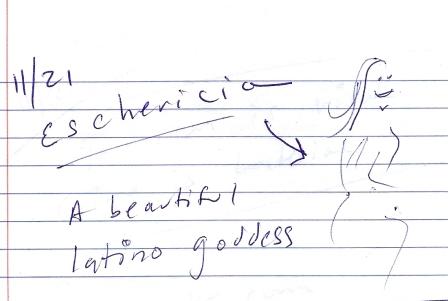 11/21
Eschericia
A beautiful
latino goddess